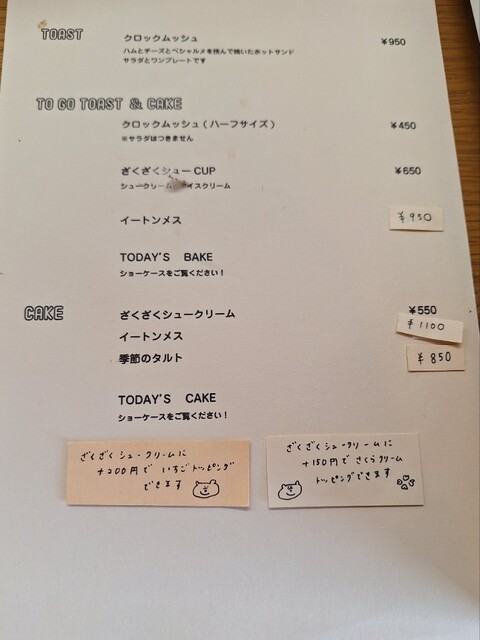 TOAST
クロックムッシュ ¥950
ハムとチーズとベシャルメを挟んで焼いたホットサンド
サラダとワンプレートです
TO GO TOAST & CAKE
クロックムッシュ(ハーフサイズ) ¥450
※サラダはつきません
ざくざくシューCUP ¥650
シュークリーム アイスクリーム
イートンメス ¥950
TODAY'S BAKE
ショーケースをご覧ください!
CAKE
ざくざくシュークリーム ¥550
イートンメス ¥1100
季節のタルト ¥850
TODAY'S CAKE
ショーケースをご覧ください!
ざくざくシュークリームに
+200円でいちごトッピング
できます
ざくざくシュークリームに
+150円でさくらクリーム
トッピングできます